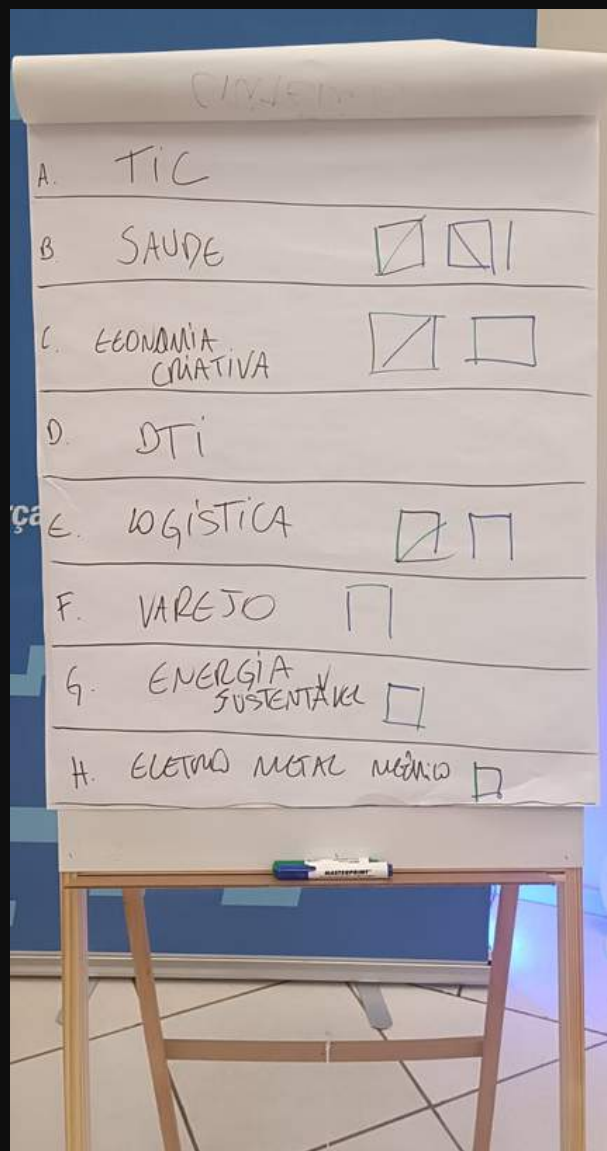 A. TIC
B. SAUDE
C. ECONOMIA
CRIATIVA
D. DTI
E. LOGÍSTICA
F. VAREJO
G. ENERGIA
SUSTENTÁVEL
H. ELETRO METAL
MASTERPRINT